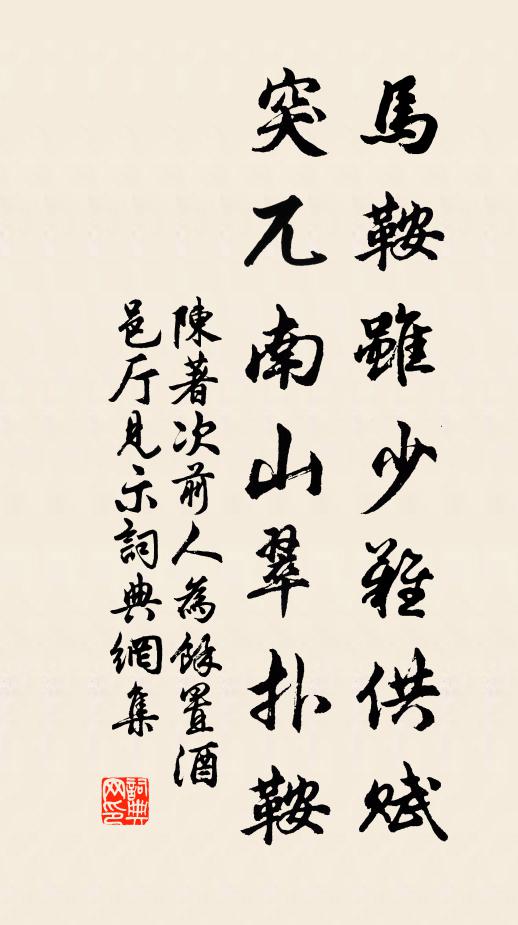 馬鞍雖少難供賦
突兀南山翠扑鞍
陳著次前人為餘置酒
邑厅見示詞典網集
詞典网印